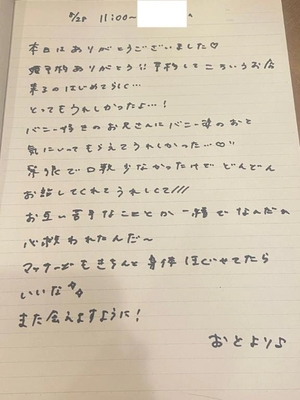 5/25 11:00〜
本日はありがとうございました♡
ありがとう!! 予約してこういうお店
来るのはじめてらしく…
とってもうれしかったよ…!
バニー好きのお兄さんにバニー姿のおと
気にいってもらえてうれしかった…♡
緊張で口数少なかったけど どんどん
お話してくれてうれしくて///
お互い苦手なこととか一緒でなんだか
心救われたんだ〜
マッサージもきちんと身体ほぐせてたら
いいな
また会えますように!
おとより♪